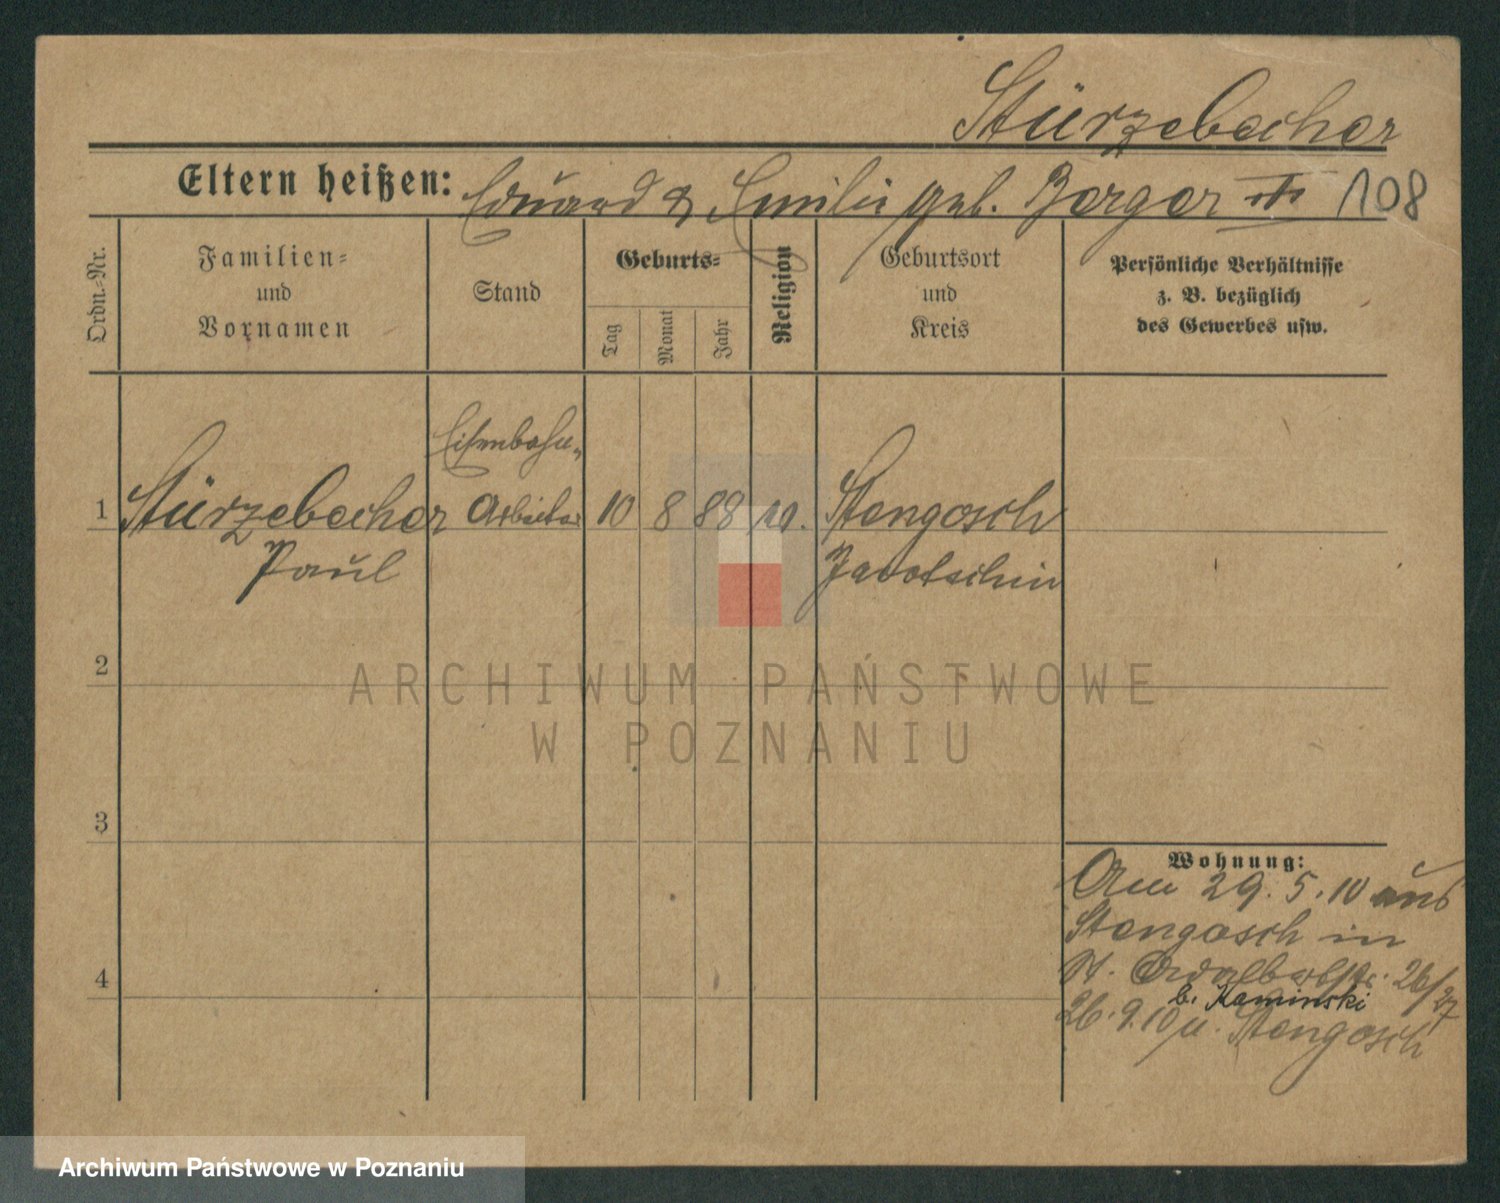 Stürzebecher
Eltern heißen: Eduard & Emilie geb. Berger 108
Ordn.-Nr.
Familien-
und
Vornamen
Stand
Geburts-
Tag
Monat
Jahr
Religion
Geburtsort
und
Kreis
Persönliche Verhältnisse
z. B. bezüglich
des Gewerbes usw.
Eisenbahn-
1 Stürzebecher Arbeiter 10 8 88 Stengosch
Paul Jarotschin
2
3
4
Wohnung:
Am 29.5.10 aus
Stengosch in
St. Adalbertstr. 26/27
b. Kaminski
26.9.10 n. Stengosch
ARCHIWUM PAŃSTWOWE
W POZNANIU
Archiwum Państwowe w Poznaniu